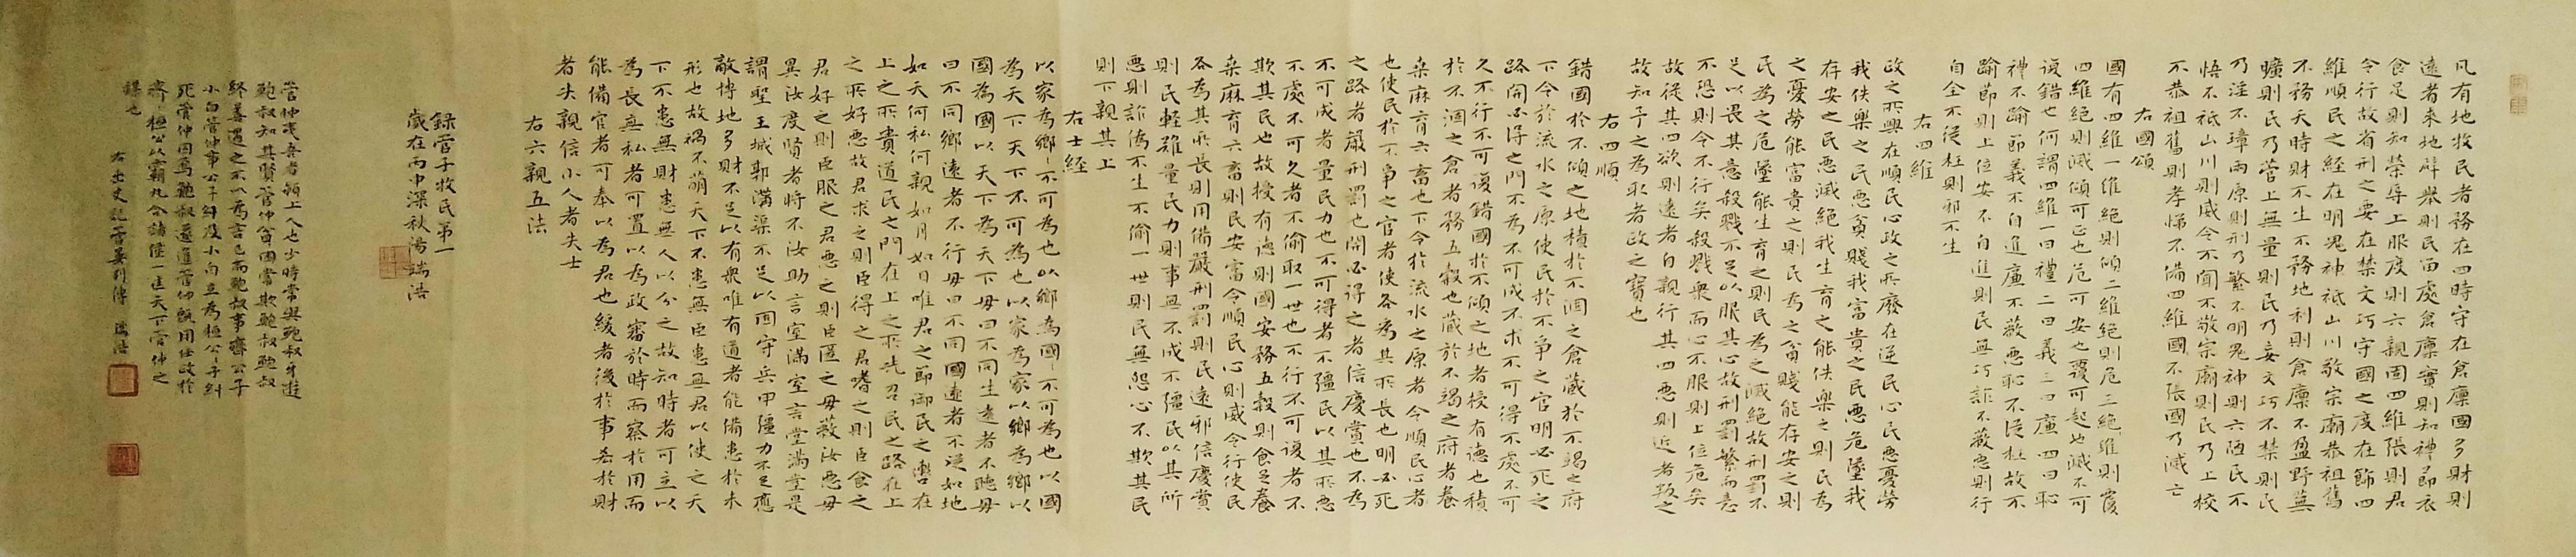 凡有地牧民者務在四時守在倉廩國多財則
遠者來地辟舉則民留處倉廩實則知禮節衣
食足則知榮辱上服度則六親固四維張則君
令行故省刑之要在禁文巧守國之度在飾四
維順民之經在明鬼神祇山川敬宗廟恭祖舊
不務天時財不生不務地利則倉廩不盈野蕪
曠則民乃菅上無量則民乃妄文巧不禁則民
乃淫不璋兩原則刑乃繁不明鬼神則六陋民不
悟不祇山川則威令不聞不敬宗廟則民乃上校
不恭祖舊則孝悌不備四維國不張國乃滅亡
右國頌
國有四維一維絕則傾二維絕則危三絕維則覆
四維絕則滅傾可正也危可安也覆可起也滅不可
復錯也何謂四維一曰禮二曰義三曰廉四曰恥
禮不踰節義不自進廉不蔽惡恥不從枉故不
踰節則上位安不自進則民無巧詐不蔽惡則行
自全不從枉則邪不生
右四維
政之所興在順民心政之所廢在逆民心民惡憂勞
我佚樂之民惡貧賤我富貴之民惡危墜我
存安之民惡滅絕我生育之能佚樂之則民為
之憂勞能富貴之則民為之貧賤能存安之則
民為之危墜能生育之則民為之滅絕故刑罰不
足以畏其意殺戮不足以服其心故刑罰繁而意
不恐則令不行矣殺戮衆而心不服則上位危矣
故從其四欲則遠者自親行其四惡則近者叛之
故知予之為取者政之寶也
右四順
錯國於不傾之地積於不涸之倉藏於不竭之府
下令於流水之原使民於不爭之官明必死之
路開必得之門不為不可成不求不可得不處不可
久不行不可復錯國於不傾之地者授有德也積
於不涸之倉者務五穀也藏於不竭之府者養
桑麻育六畜也下令於流水之原者令順民心者
也使民於不爭之官者使各為其所長也明必死
之路者嚴刑罰也開必得之者信慶賞也不為
不可成者量民力也不可得者不彊民以其所惡
不處不可久者不偷取一世也不行不可復者不
欺其民也故授有德則國安務五穀則食足養
桑麻育六畜則民安富令順民心則威令行使民
各為其所長則用備嚴刑罰則民遠邪信慶賞
則民輕難量民力則事無不成不彊民以其所
惡則詐偽不生不偷一世則民無怨心不欺其民
則下親其上
右士經
以家為鄉〻不可為也以鄉為國〻不可為也以國
為天下天下不可為也以家為家以鄉為鄉以
國為國以天下為天下毋曰不同生遠者不聽毋
曰不同鄉遠者不行毋曰不同國遠者不從如地
如天何私何親如月如日唯君之節御民之轡在
上之所貴道民之門在上之所先召民之路在上
之所好惡故君求之則臣得之君嗜之則臣食之
君好之則臣服之君惡之則臣匿之毋蔽汝惡毋
異汝度賢者將不汝助言室滿室言堂滿堂是
謂聖王城郭溝渠不足以固守兵甲彊力不足應
敵博地多財不足以有衆唯有道者能備患於未
形也故禍不萌天下不患無臣患無君以使之天
下不患無財患無人以分之故知時者可立以
為長無私者可置以為政審於時而察於用而
能備官者可奉以為君也緩者後於事吝於財
者失親信小人者失士
右六親五法
錄管子牧民第一
歲在丙申深秋湯瑞浩
管仲夷吾者潁上人也少時常與鮑叔牙遊
鮑叔知其賢管仲貧困常欺鮑叔鮑叔
終善遇之不以為言已而鮑叔事齊公子
小白管仲事公子糾及小白立為桓公〻子糾
死管仲囚焉鮑叔遂進管仲既用任政於
齊〻桓公以霸九合諸侯一匡天下管仲之
謀也
右出史記管晏列傳 瑞浩